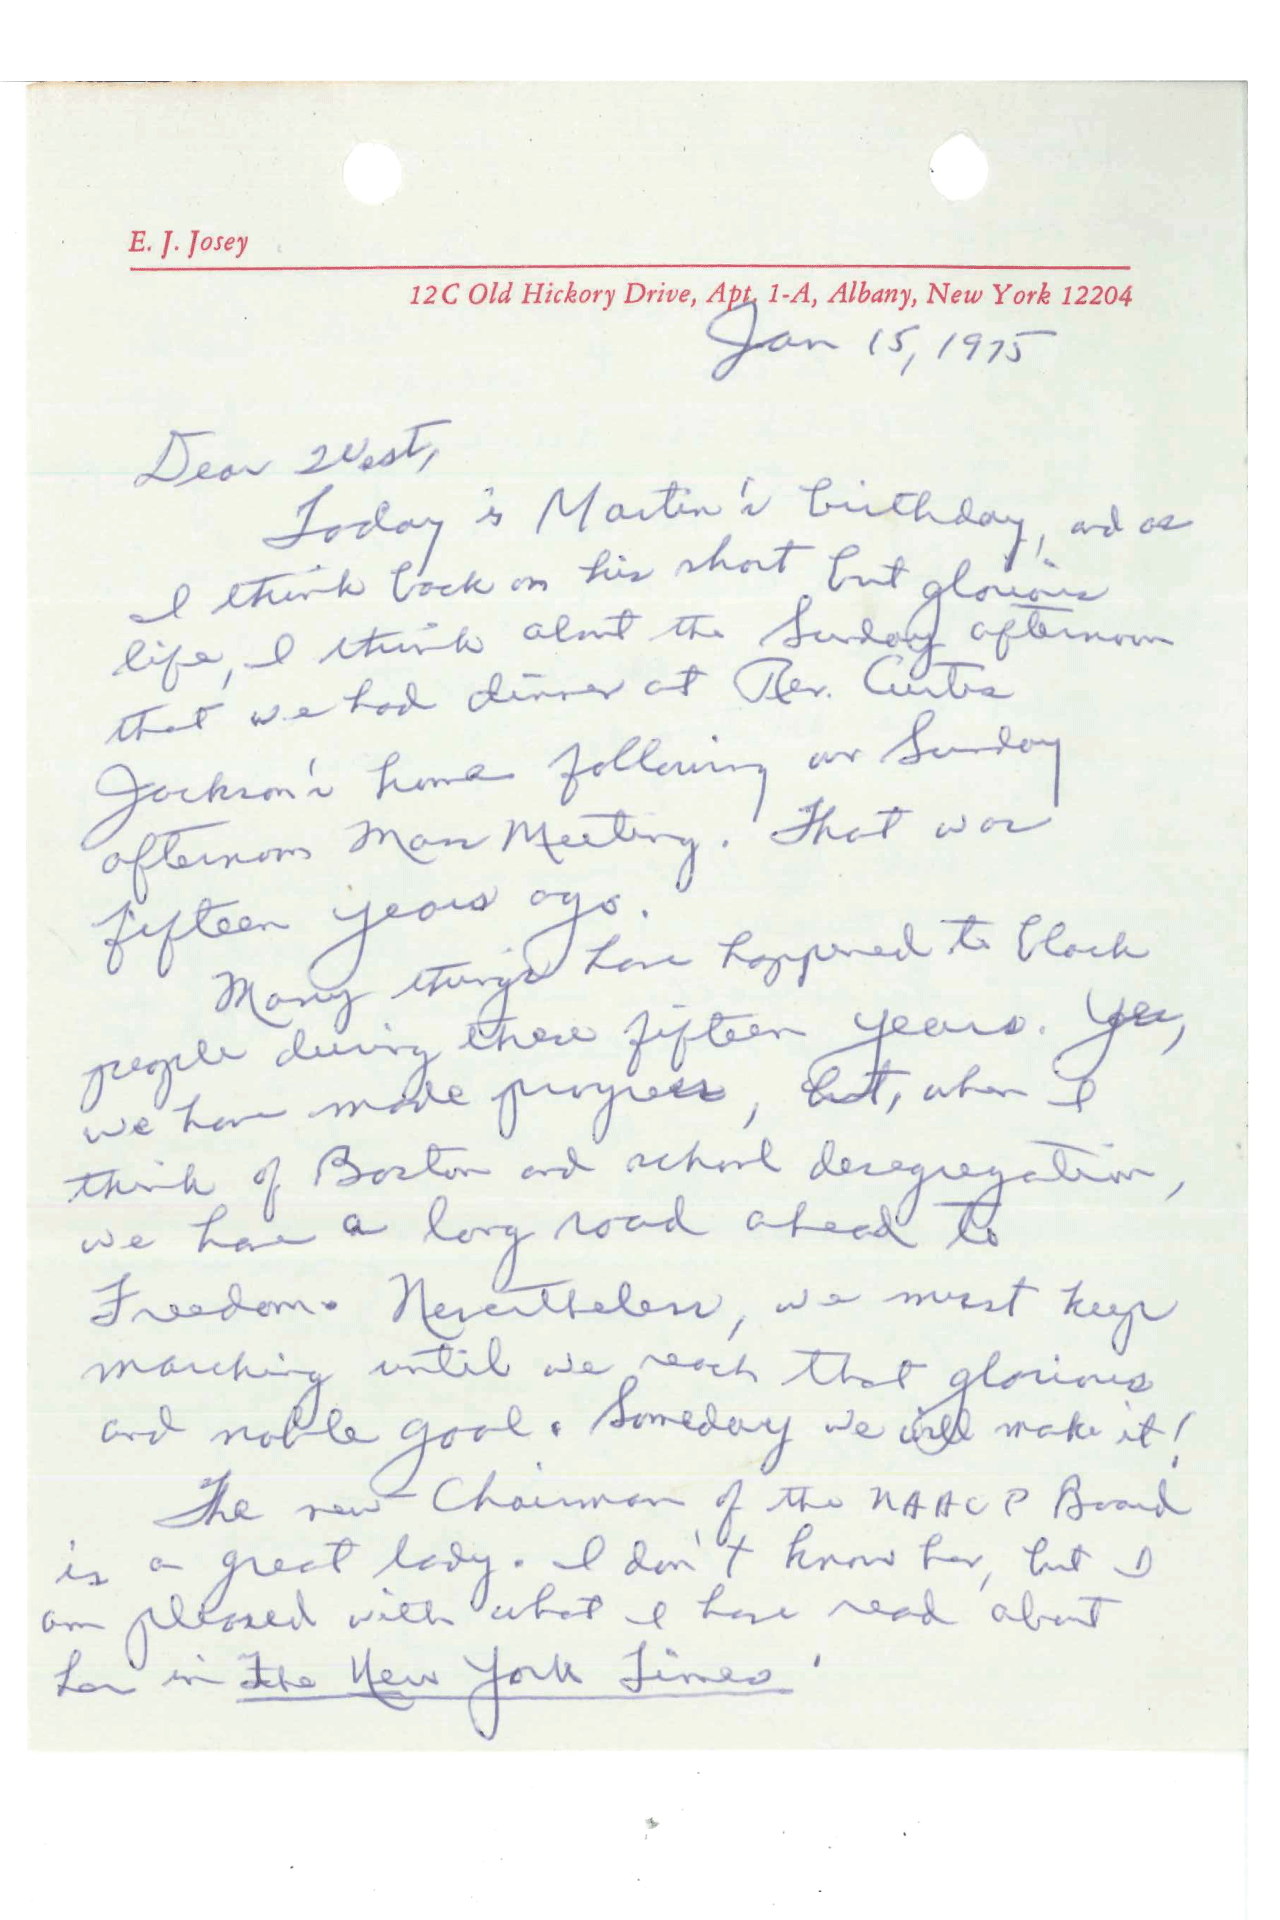 E. J. Josey
12C Old Hickory Drive, Apt. 1-A, Albany, New York 12204
Jan 15, 1975
Dear West,
Today is Martin's birthday, and as
I think back on his short but glorious
life, I think about the Sunday afternoon
that we had dinner at Rev. Curtis
Jackson's home following our Sunday
afternoon Mass Meeting. That was
fifteen years ago.
Many things have happened to black
people during these fifteen years. Yes,
we have made progress, but, when I
think of Boston and school desegregation,
we have a long road ahead to
Freedom. Nevertheless, we must keep
marching until we reach that glorious
and noble goal. Someday we will make it!
The new Chairman of the NAACP Board
is a great lady. I don't know her, but I
am pleased with what I have read about
her in The New York Times.